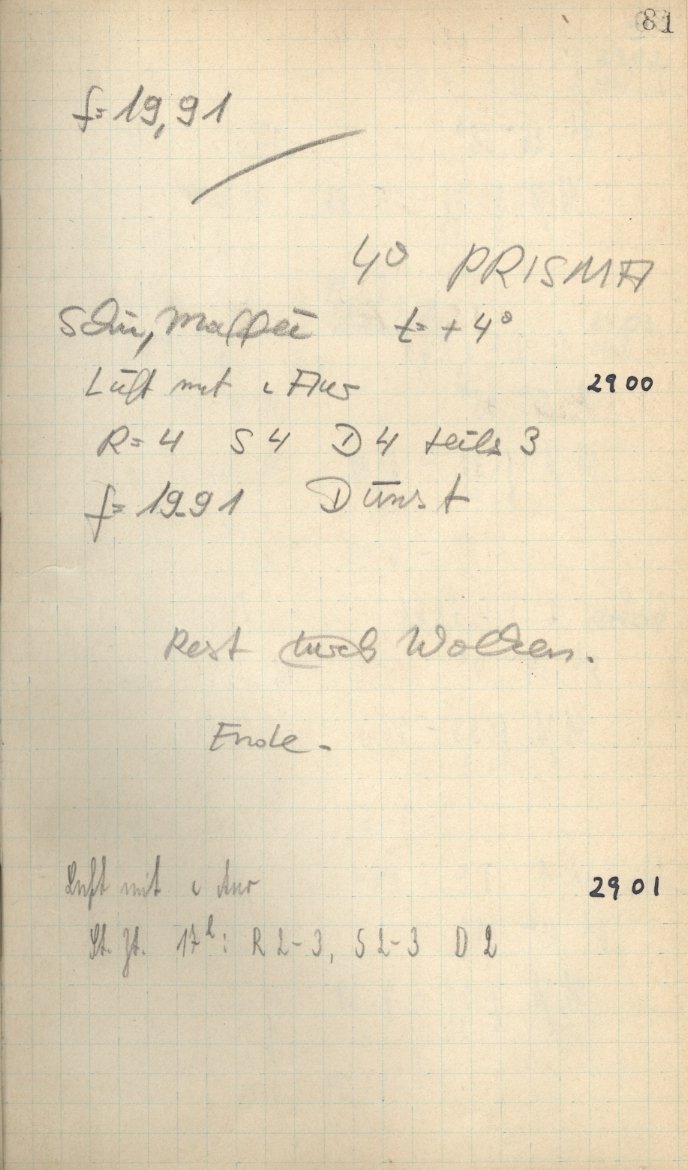 81
f=19,91
4° PRISMA
Schü, Maffei t=+4°
Luft mit ι Aur 2900
R=4 S4 D4 teils 3
f=19.91 Dunst
Rest durch Wolken.
Ende.
Luft mit ι Aur 2901
St. Zt. 17h: R 2-3, S 2-3 D 2